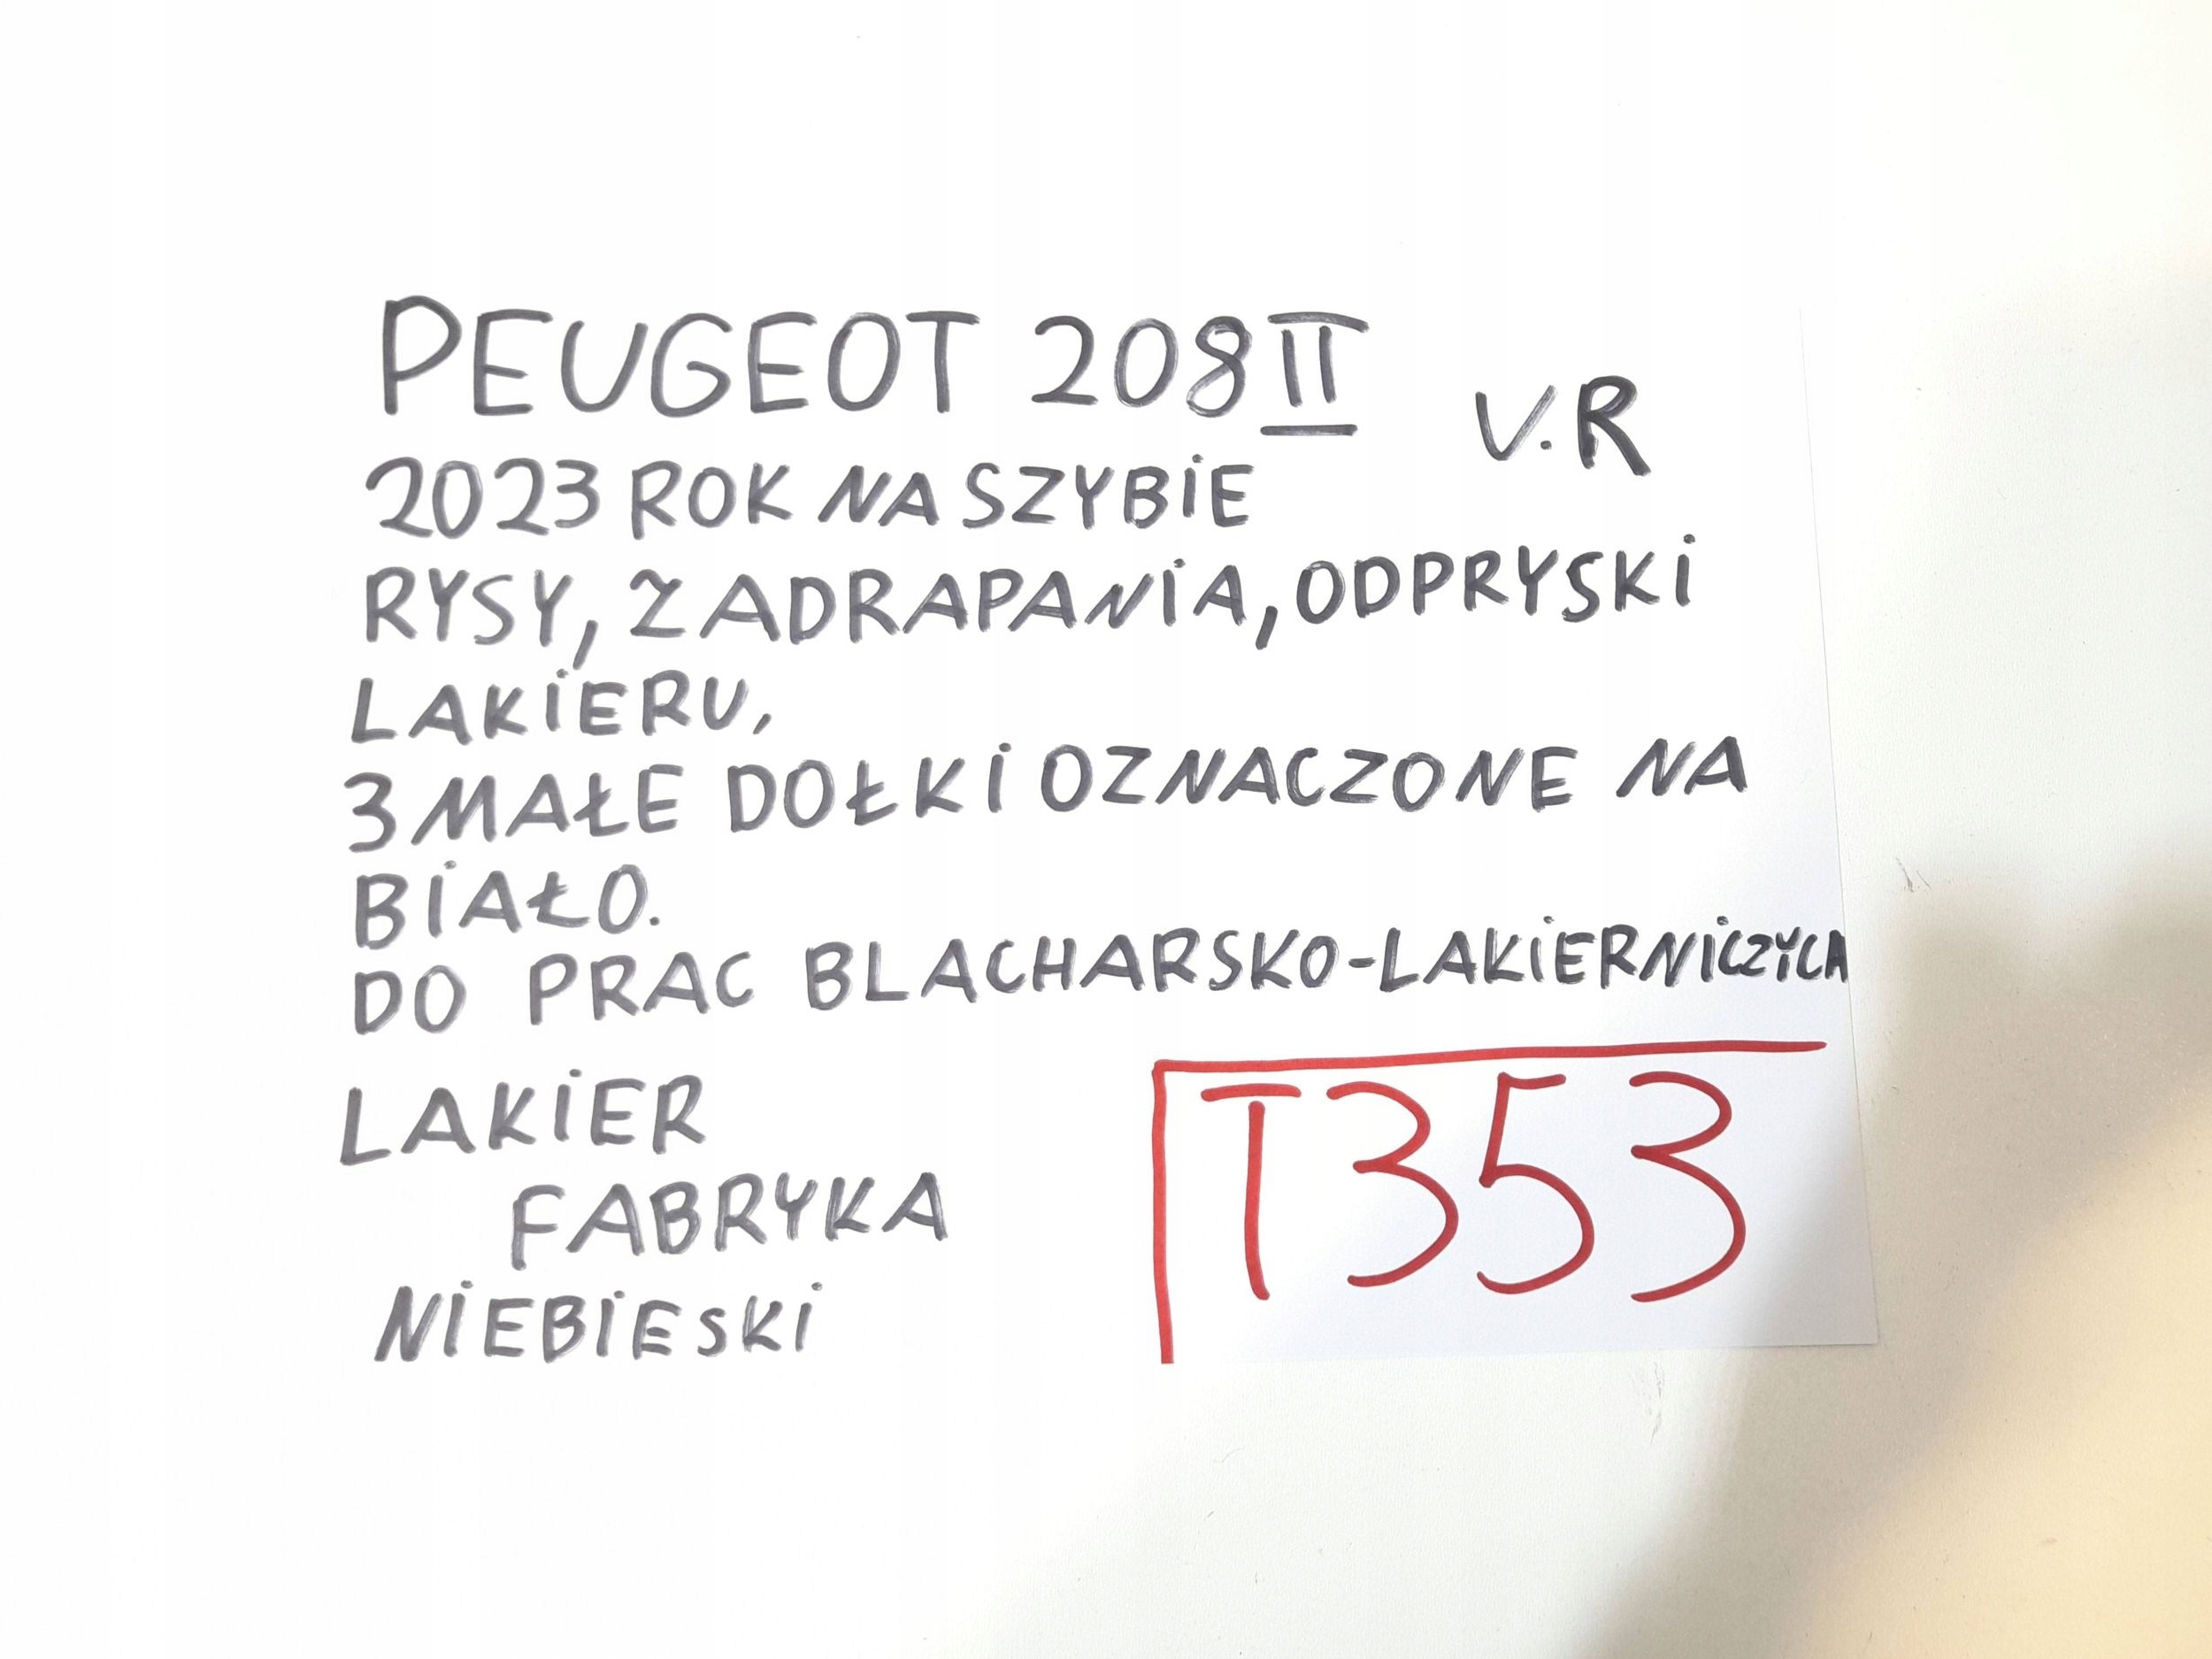 PEUGEOT 208 II
V.R
2023 ROK NA SZYBIE
RYSY, ZADRAPANIA, ODPRYSKI
LAKIERU,
3 MAŁE DOŁKI OZNACZONE NA
BIAŁO.
DO PRAC BLACHARSKO-LAKIERNICZYCH
LAKIER
FABRYKA
NIEBIESKI
T353